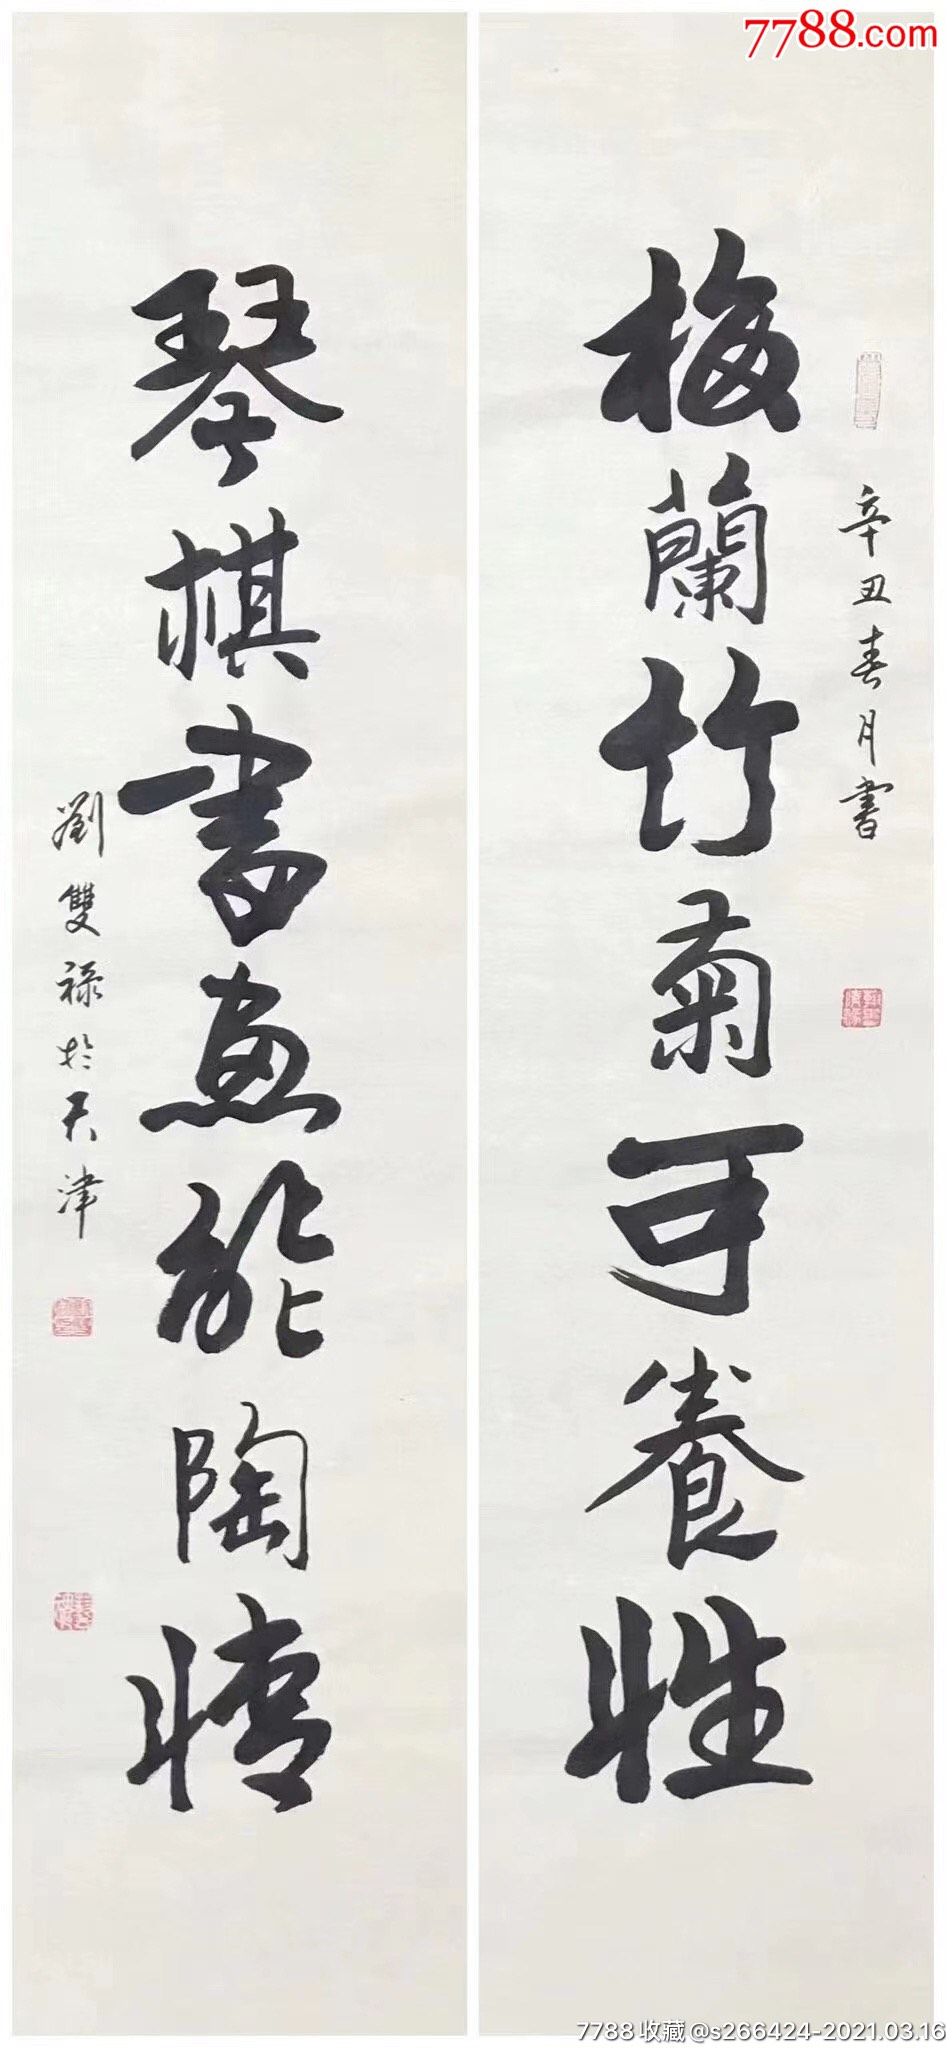 7788.com
辛丑春月書
梅蘭竹菊可養性
琴棋書畫能陶情
劉雙祿於天津
7788收藏@s266424-2021.03.16